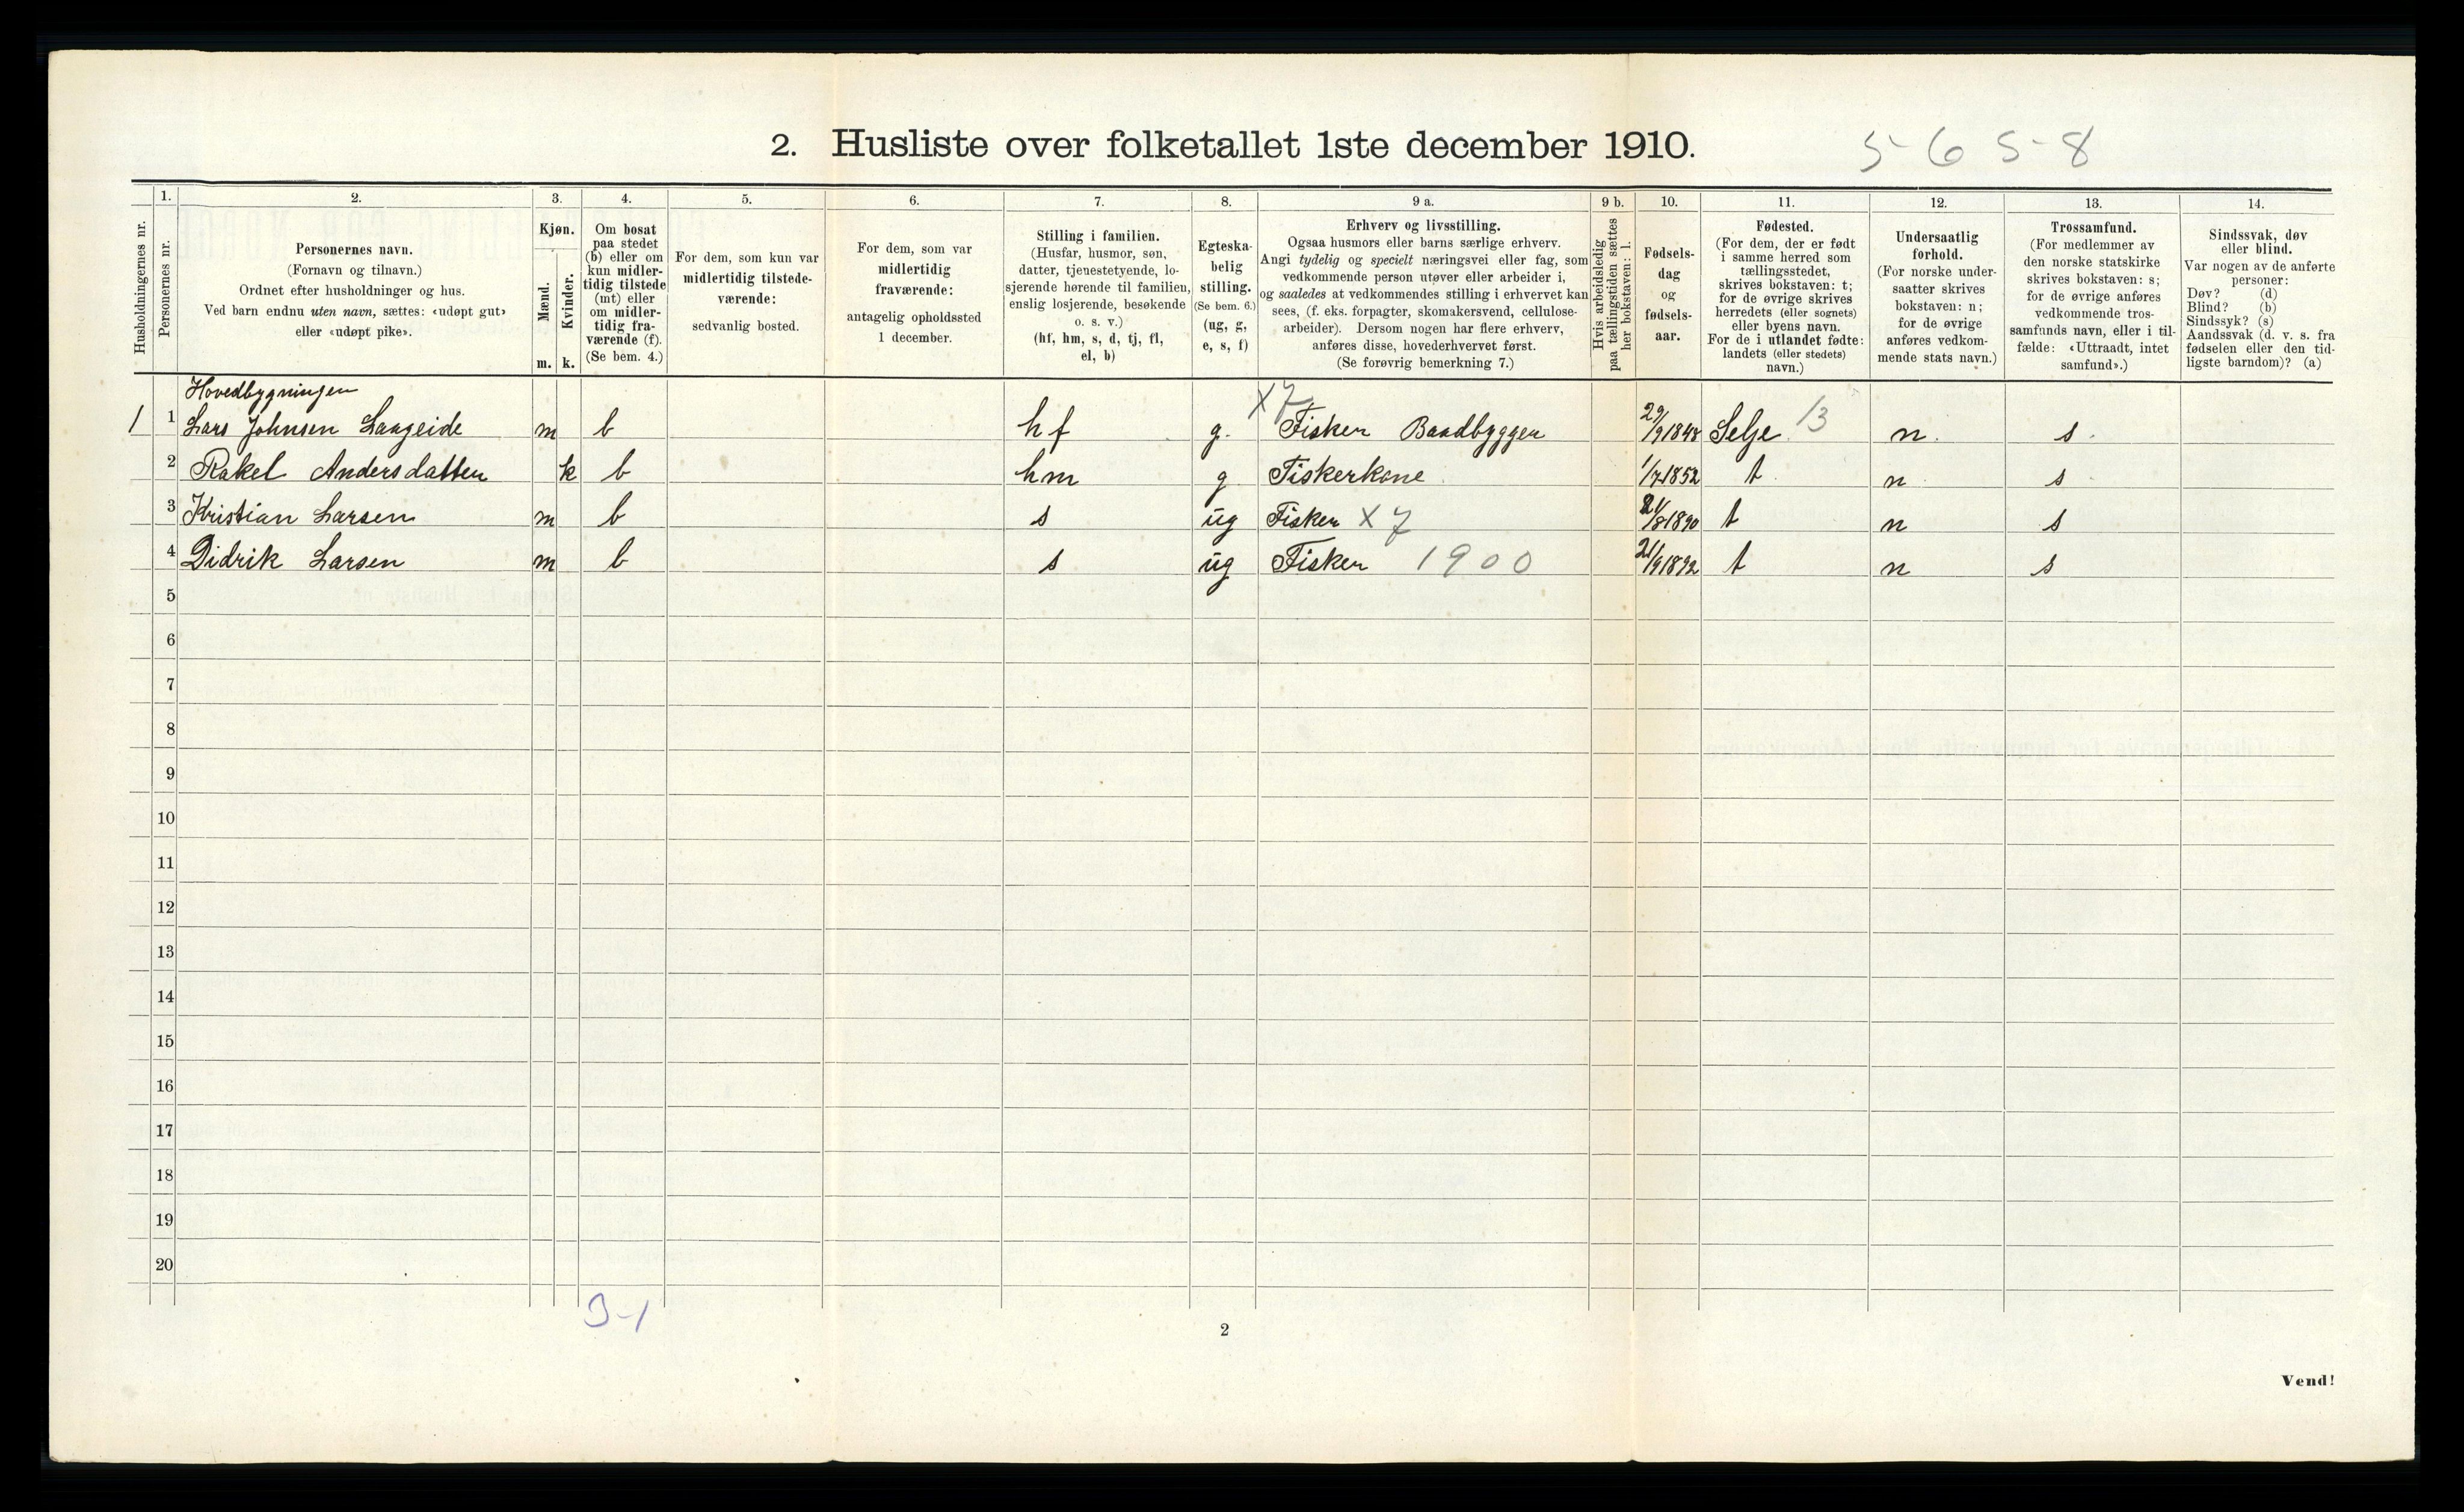 2. Husliste over folketallet 1ste december 1910.
5-6 5-8
Husholdningernes nr.
1.
Personernes nr.
2.
Personernes navn.
(Fornavn og tilnavn.)
Ordnet efter husholdninger og hus.
Ved barn endnu uten navn, sættes: «udøpt gut»
eller «udøpt pike».
3.
Kjøn.
Mænd.
Kvinder.
m. k.
4.
Om bosat
paa stedet
(b) eller om
kun midler-
tidig tilstede
(mt) eller
om midler-
tidig fra-
værende (f).
(Se bem. 4.)
5.
For dem, som kun var
midlertidig tilstede-
værende:
sedvanlig bosted.
6.
For dem, som var
midlertidig
fraværende:
antagelig opholdssted
1 december.
7.
Stilling i familien.
(Husfar, husmor, søn,
datter, tjenestetyende, lo-
sjerende hørende til familien,
enslig losjerende, besøkende
o. s. v.)
(hf, hm, s, d, tj, fl,
el, b)
8.
Egteska-
belig
stilling.
(Se bem. 6.)
(ug, g,
e, s, f)
9 a.
Erhverv og livsstilling.
Ogsaa husmors eller barns særlige erhverv.
Angi tydelig og specielt næringsvei eller fag, som
vedkommende person utøver eller arbeider i,
og saaledes at vedkommendes stilling i erhvervet kan
sees, (f. eks. forpagter, skomakersvend, cellulose-
arbeider). Dersom nogen har flere erhverv,
anføres disse, hovederhvervet først.
(Se forøvrig bemerkning 7.)
9 b.
Hvis arbeidsledig
paa tællingstiden sættes
her bokstaven: l.
10.
Fødsels-
dag
og
fødsels-
aar.
11.
Fødested.
(For dem, der er født
i samme herred som
tællingsstedet,
skrives bokstaven: t;
for de øvrige skrives
herredets (eller sognets)
eller byens navn.
For de i utlandet fødte:
landets (eller stedets)
navn.)
12.
Undersaatlig
forhold.
(For norske under-
saatter skrives
bokstaven: n;
for de øvrige
anføres vedkom-
mende stats navn.)
13.
Trossamfund.
(For medlemmer av
den norske statskirke
skrives bokstaven: s;
for de øvrige anføres
vedkommende tros-
samfunds navn, eller i til-
fælde: «Uttraadt, intet
samfund».)
14.
Sindssvak, døv
eller blind.
Var nogen av de anførte
personer:
Døv? (d)
Blind? (b)
Sindssyk? (s)
Aandssvak (d. v. s. fra
fødselen eller den tid-
ligste barndom)? (a)
Hovedbygningen
X7
1 1 Lars Johnsen Langeide m b hf g. Fisker Baadbygger 29/9 1848 Selje 13 n. s.
2 Rakel Andersdatter k b hm g Fiskerkone 1/7 1852 t n s
3 Kristian Larsen m b s ug Fisker X 7 21/8 1890 t n s
4 Didrik Larsen m b s ug Fisker 1900 21/9 1892 t n s
5
6
7
8
9
10
11
12
13
14
15
16
17
18
19
20
3-1
2
Vend!